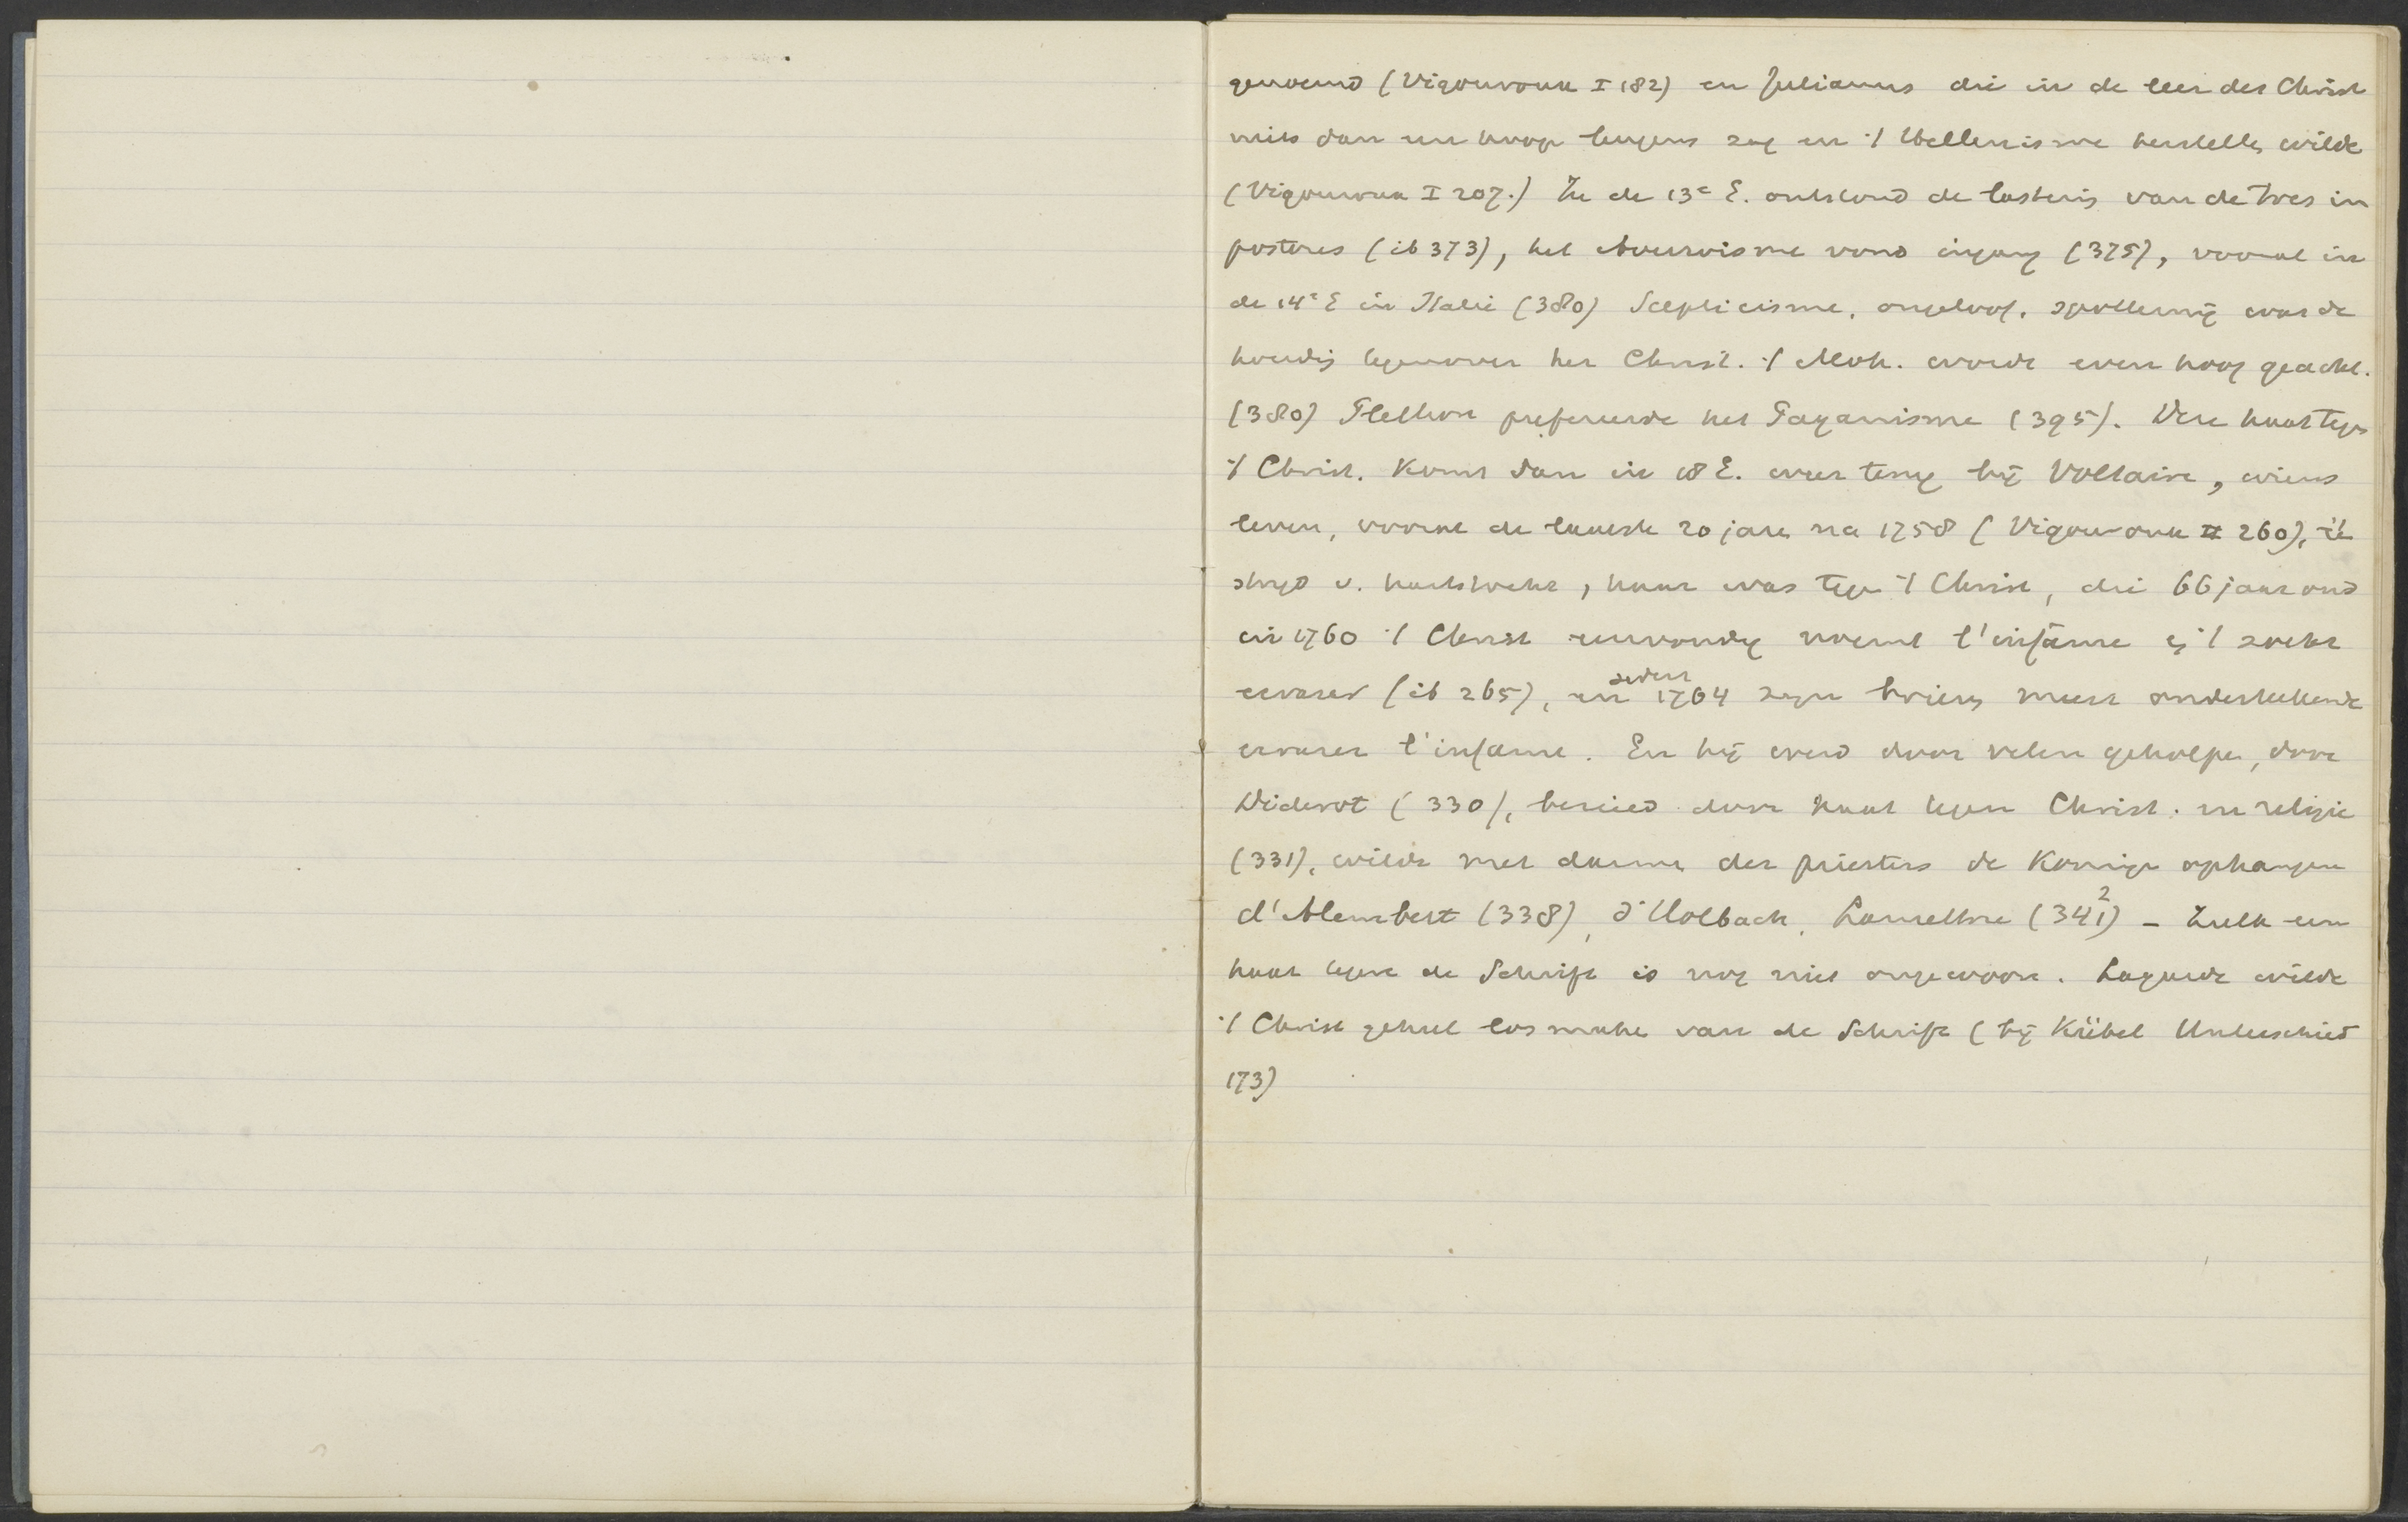 genoemd (Vigouroux I 182) en Julianus die in de leer des Christ
niets dan een hoop leugens zag en 't Hellenisme herstellen wilde
(Vigouroux I 207.) In de 13e E. ontstond de lastering van de tres im
postores (ib 373), het Averroisme vond ingang (375), vooral in
de 14e E in Italie (380) Scepticisme, ongeloof, spotternij was de
houding tegenover het Christ. 't Moh. werd even hoog geacht.
(380) Plethon prefereerde het Paganisme (395). Deze haat tegen
't Christ. komt dan in 18 E. weer terug bij Voltaire, wiens
leven, vooral de laatste 20 jaren na 1758 (Vigouroux II 260), één
strijd v. hartstocht, haat was tegen 't Christ, die 66 jaar oud
in 1760 't Christ eenvoudig noemt l'infâme en 't zoekt
ecraser (ib 265), en sedert 1764 zijn brieven meest onderteekende
ecraser l'infame. En hij werd door velen geholpen, door
Diderot (330), bezield door haat tegen Christ. en religie
(331), wilde met darmen der priesters de Koningen ophangen
d'Alembert (338), d'Holbach, Lamettrie (341) 2 – Zulk een
haat tegen de Schrift is nog niet ongewoon. Lagarde wilde
't Christ geheel los maken van de Schrift (bij Kübel Unterschied
173)